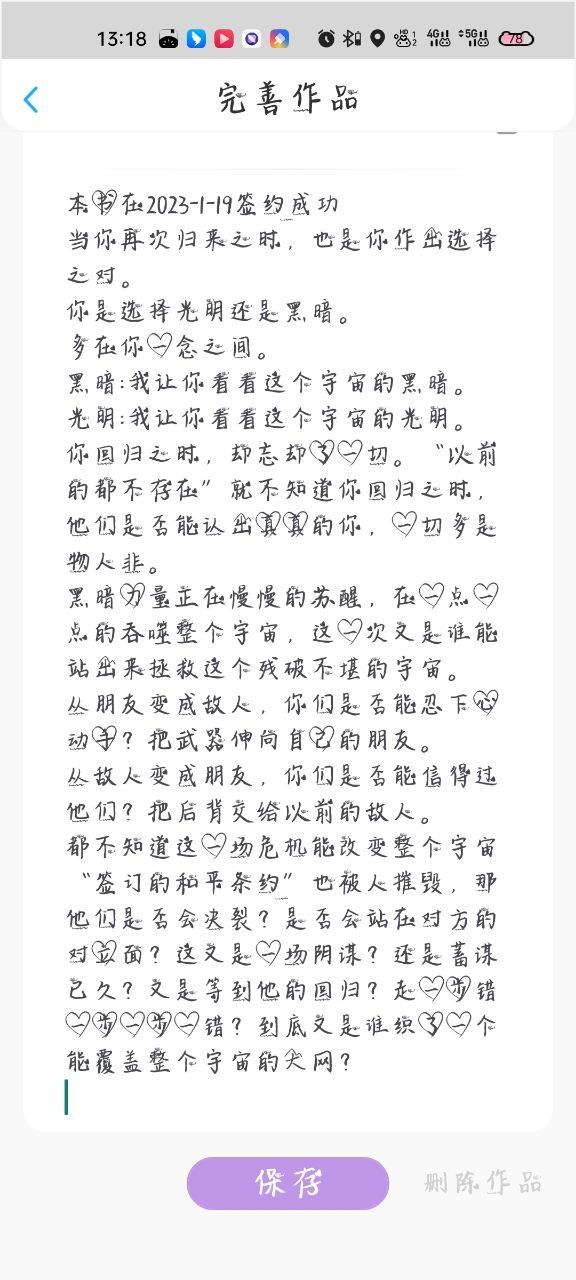 13:18
4G
5G
78
完善作品
本书在2023-1-19签约成功
当你再次归来之时，也是你作出选择
之时。
你是选择光明还是黑暗。
多在你一念之间。
黑暗:我让你看看这个宇宙的黑暗。
光明:我让你看看这个宇宙的光明。
你回归之时，却忘却了一切。“以前
的都不存在”就不知道你回归之时，
他们是否能认出真真的你，一切多是
物人非。
黑暗力量正在慢慢的苏醒，在一点一
点的吞噬整个宇宙，这一次又是谁能
站出来拯救这个残破不堪的宇宙。
从朋友变成敌人，你们是否能忍下心
动手？把武器伸向自己的朋友。
从敌人变成朋友，你们是否能信得过
他们？把后背交给以前的敌人。
都不知道这一场危机能改变整个宇宙
“签订的和平条约”也被人摧毁，那
他们是否会决裂？是否会站在对方的
对立面？这又是一场阴谋？还是蓄谋
已久？又是等到他的回归？走一步错
一步一步一错？到底又是谁织了一个
能覆盖整个宇宙的大网？
保存
删除作品